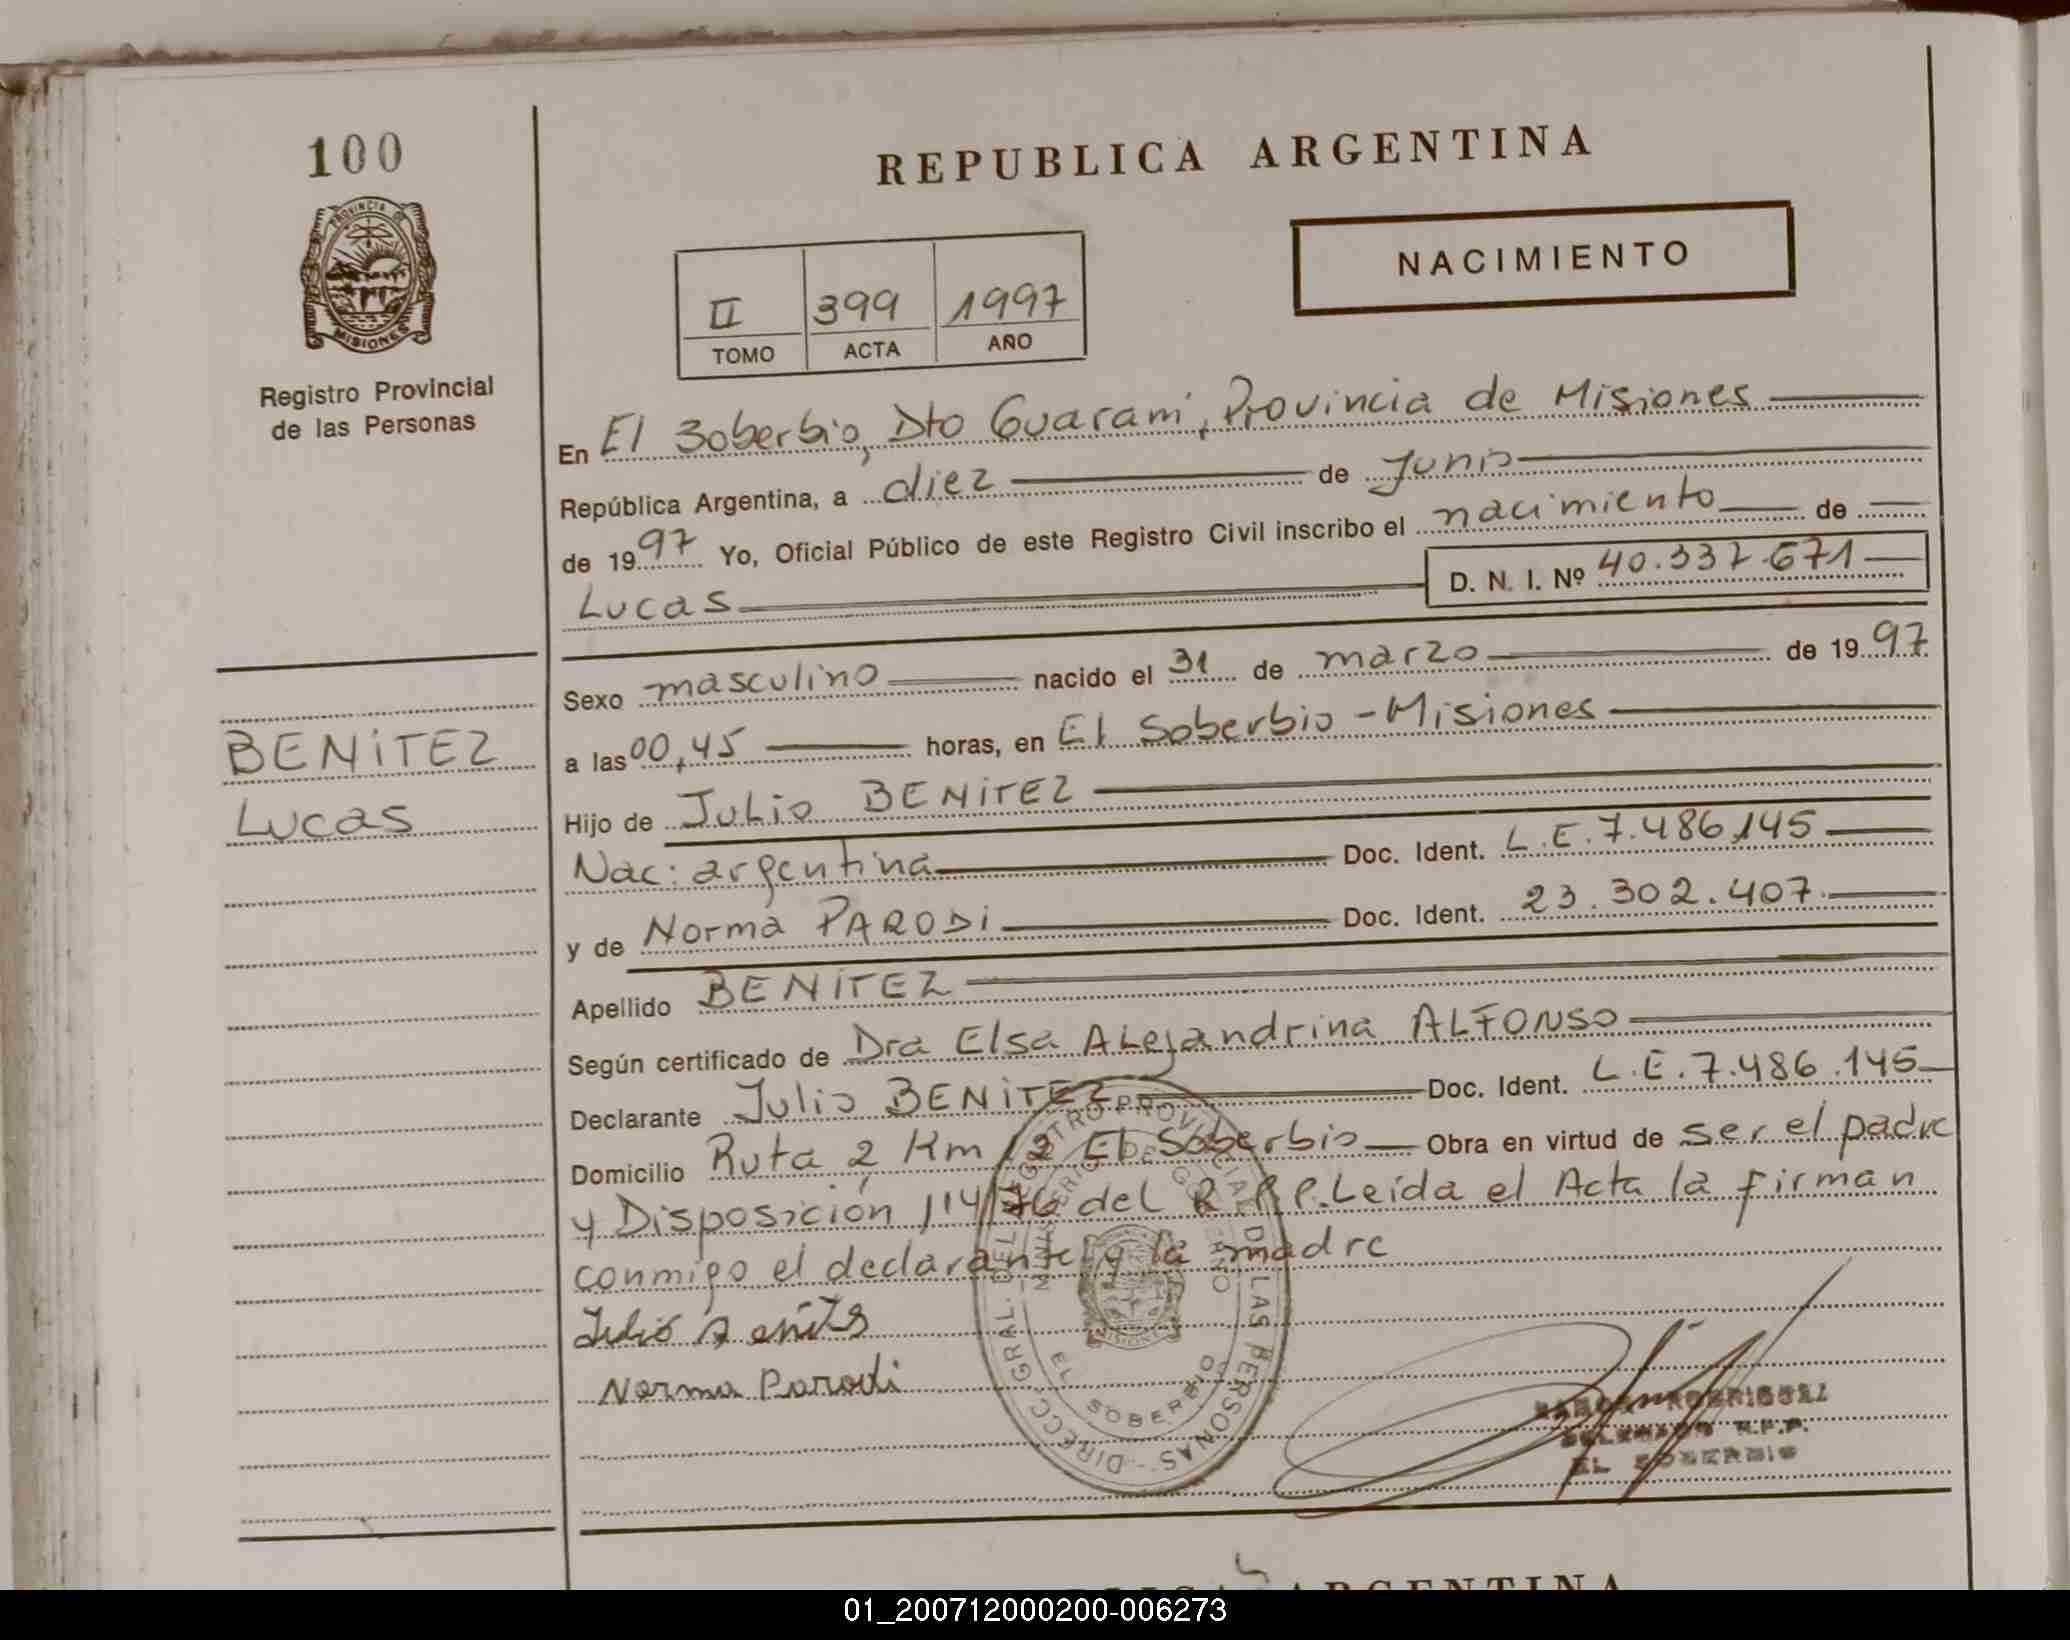 100
REPUBLICA ARGENTINA
PROVINCIA DE
MISIONES
Registro Provincial
de las Personas
NACIMIENTO
II 399 1997
TOMO ACTA AÑO
En El Soberbio, Dto Guaraní, Provincia de Misiones
República Argentina, a diez de Junio
de 1997 Yo, Oficial Público de este Registro Civil inscribo el nacimiento de
Lucas D. N. I. Nº 40.337.671
Sexo masculino nacido el 31 de marzo de 1997
a las 00,45 horas, en El Soberbio - Misiones
BENITEZ
Lucas
Hijo de Julio BENITEZ
Nac: argentina Doc. Ident. L.E. 7.486.145
y de Norma PARODI Doc. Ident. 23.302.407
Apellido BENITEZ
Según certificado de Dra Elsa Alejandrina ALFONSO
Declarante Julio BENITEZ Doc. Ident. L.E. 7.486.145
Domicilio Ruta 2 Km 12 El Soberbio Obra en virtud de ser el padre
y Disposición 114/76 del R.P.P. Leída el Acta la firman
conmigo el declarante y la madre
Julio Benites
Norma Parodi
DIRECC. GRAL. DEL REGISTRO PROVINCIAL DE LAS PERSONAS
MINISTERIO DE GOBIERNO
MISIONES
EL SOBERBIO
RODRIGUEZ
R.P.P.
EL SOBERBIO
ARGENTINA
01_200712000200-006273